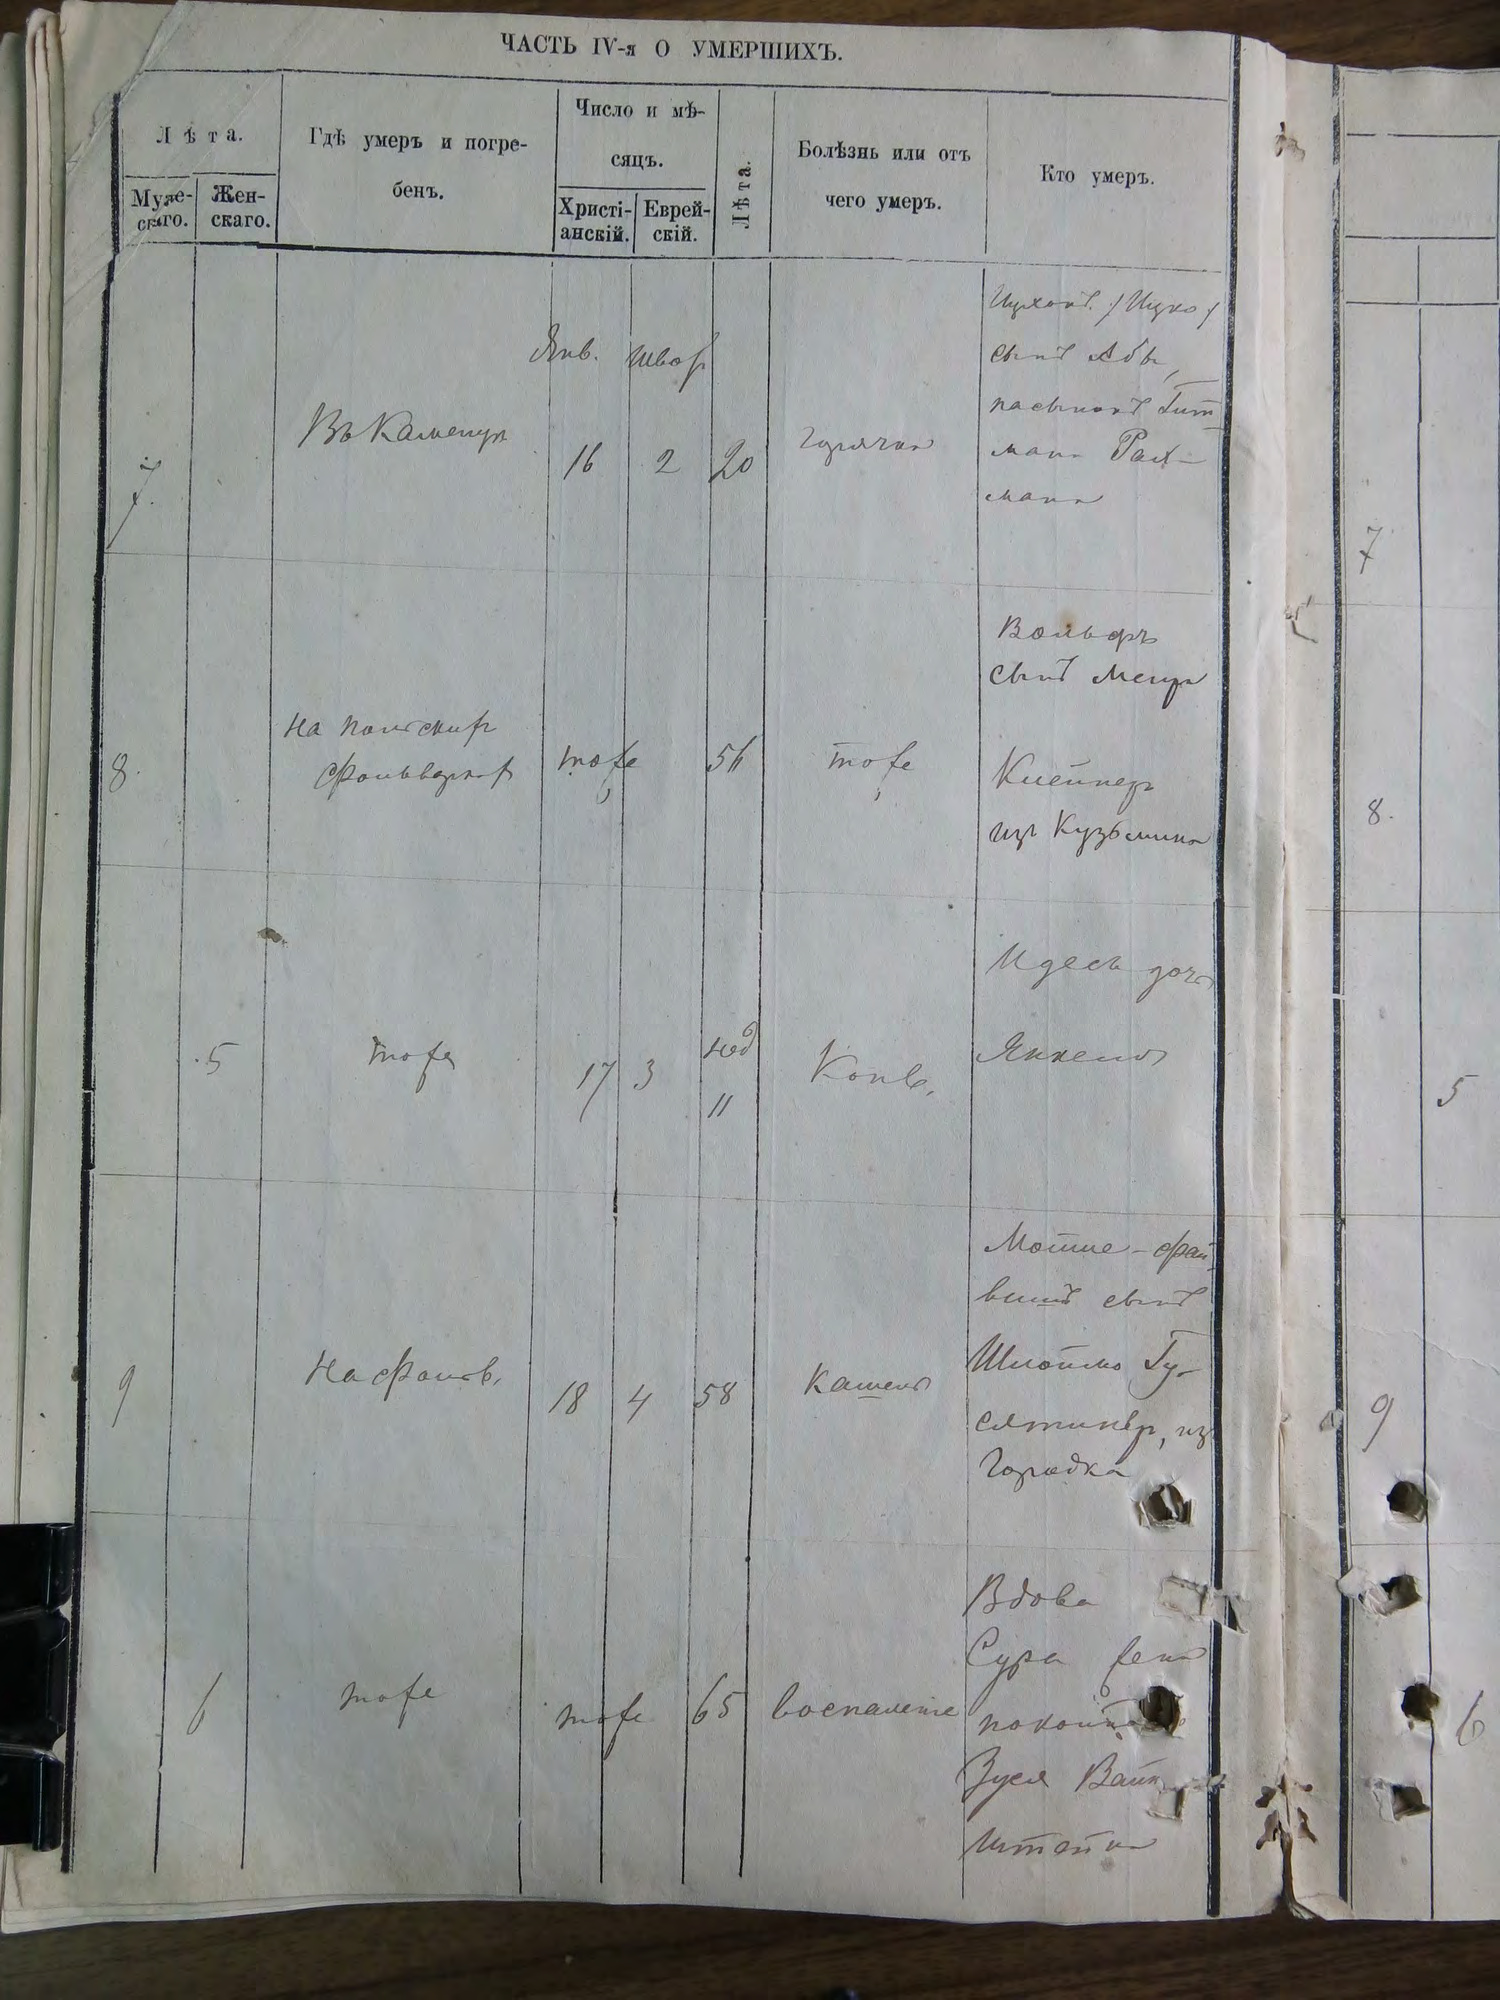 ЧАСТЬ IV-я О УМЕРШИХЪ.
Лѣта.
Муже-
скаго.
Жен-
скаго.
Гдѣ умеръ и погре-
бенъ.
Число и мѣ-
сяцъ.
Христі-
анскій.
Еврей-
скій.
Лѣта.
Болѣзнь или отъ
чего умеръ.
Кто умеръ.
7.
Въ Каменцѣ
Янв.
16
Шват
2
20
горячка
/Ицко/
сынъ Абы,
пасынокъ Гит-
мана Рах-
мана
7
8.
на польских
фольварках
тоже
56
тоже
Вольфъ
сынъ Меира
Клейнер
из Кузьмина
8.
5
тоже
17
3
нед
11
Конв.
Идесь дочь
Янкеля
5
9
на фольв.
18
4
58
кашель
Мотше-Фай-
вишъ сынъ
Шлоймо Гу-
сятинер, из
Городка
9
6
тоже
тоже
65
воспаление
Вдова
Сура жена
Зуся Вайн
штейна
6